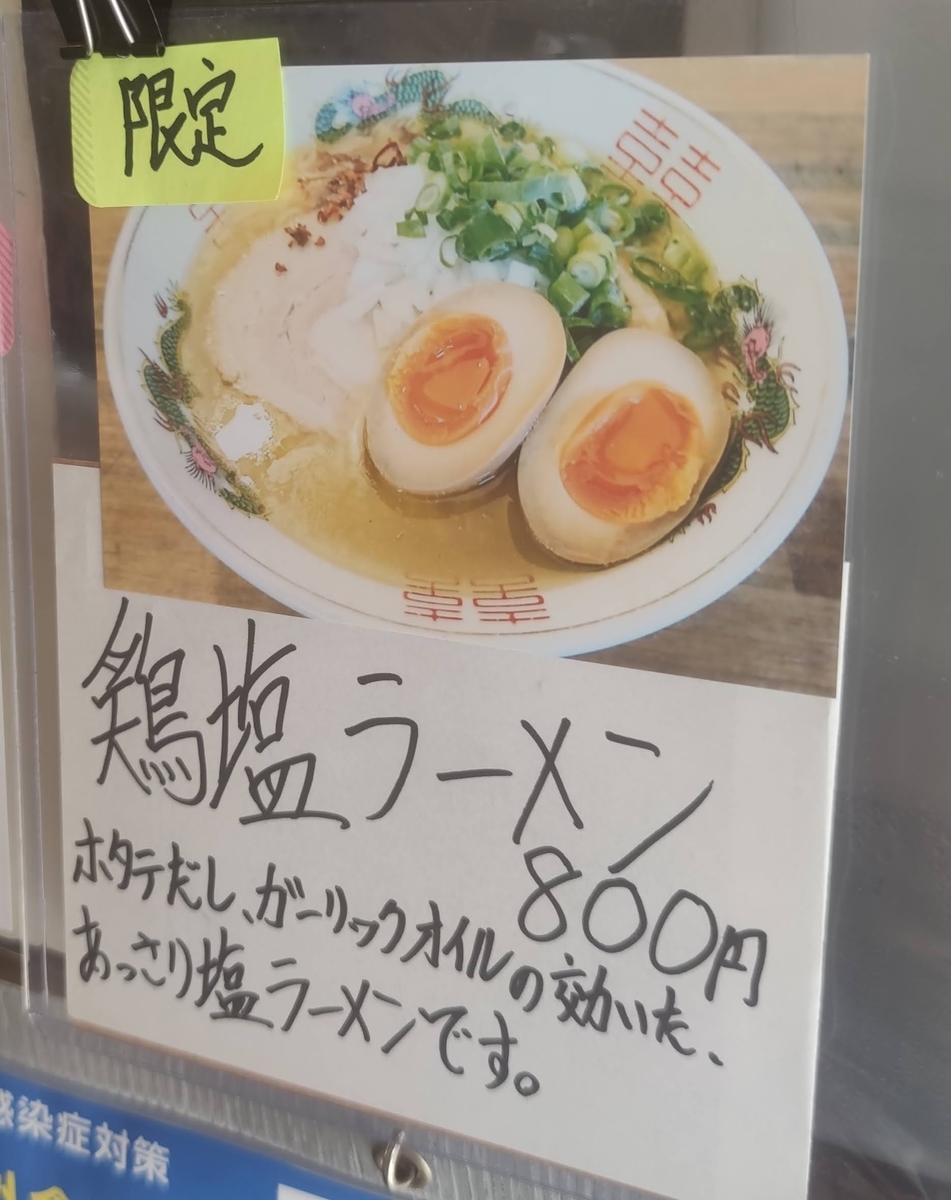 限定
鶏塩ラーメン
800円
ホタテだし、ガーリックオイルの効いた、
あっさり塩ラーメンです。
感染症対策